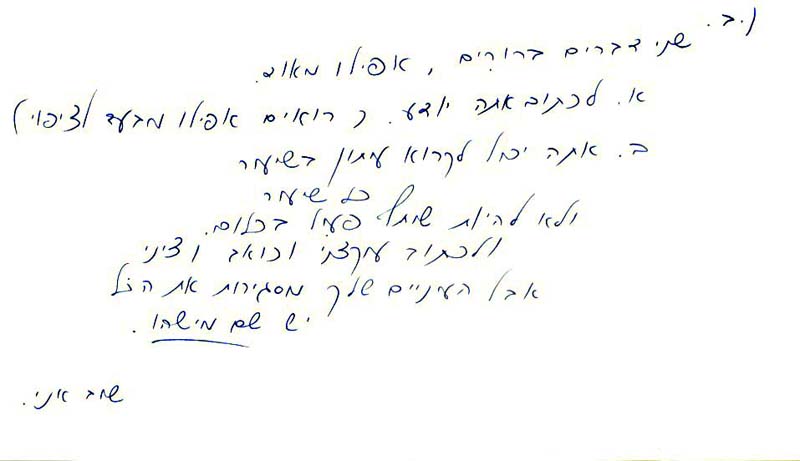 י.ב.
שני דברים ברורים, אפילו מאוד.
א. לכתוב אתה יודע. (רואים אפילו מבעד לציפוי)
ב. אתה יכול לקרוא עתון בשיעור
כל שיעור
ולא להיות שותף פעיל בכלום.
ולכתוב עוקצני וכואב וציני
אבל העיניים שלך מסגירות את הכל
יש שם מישהו.
שוב אני.